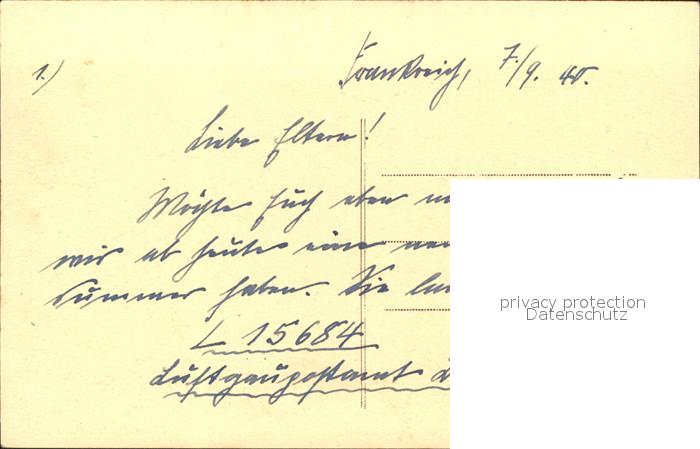 1.)
Frankreich, 7./9. 40.
Liebe Eltern!
Möchte Euch eben
wir ab heute eine
nummer haben. Sie
L 15684
Luftgaupostamt
privacy protection
Datenschutz